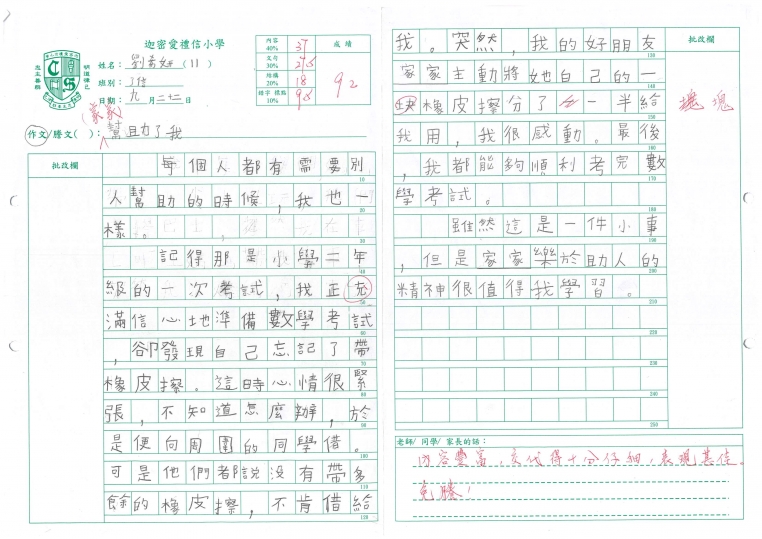 迦密愛禮信小學
姓名：劉  (11)
班別：
日期：九月二十二日
內容 40% 37
文句 30% 28
結構 20% 18
錯字 標點 10% 9
成績 92
(家家)
作文/謄文( )：幫助了我
批改欄
每個人都有需要別 10
人幫助的時候，我也一 20
樣。 30
記得那是小學二年 40
級的一次考試，我正充 50
滿信心地準備數學考試 60
，卻發現自己忘記了帶 70
橡皮擦。這時心情很緊 80
張，不知道怎麼辦，於 90
是便向周圍的同學借。 100
可是他們都說沒有帶多 110
餘的橡皮擦，不肯借給 120
我。突然，我的好朋友 130
家家主動將她自己的一 140
塊橡皮擦分了一半給 150
我用，我很感動。最後 160
，我都能夠順利考完數 170
學考試。 180
雖然這是一件小事 190
，但是家家樂於助人的 200
精神很值得我學習。 210
220
230
240
250
批改欄
塊
老師/ 同學/ 家長的話：
內容豐富，交代得十分仔細，表現甚佳。
免謄！